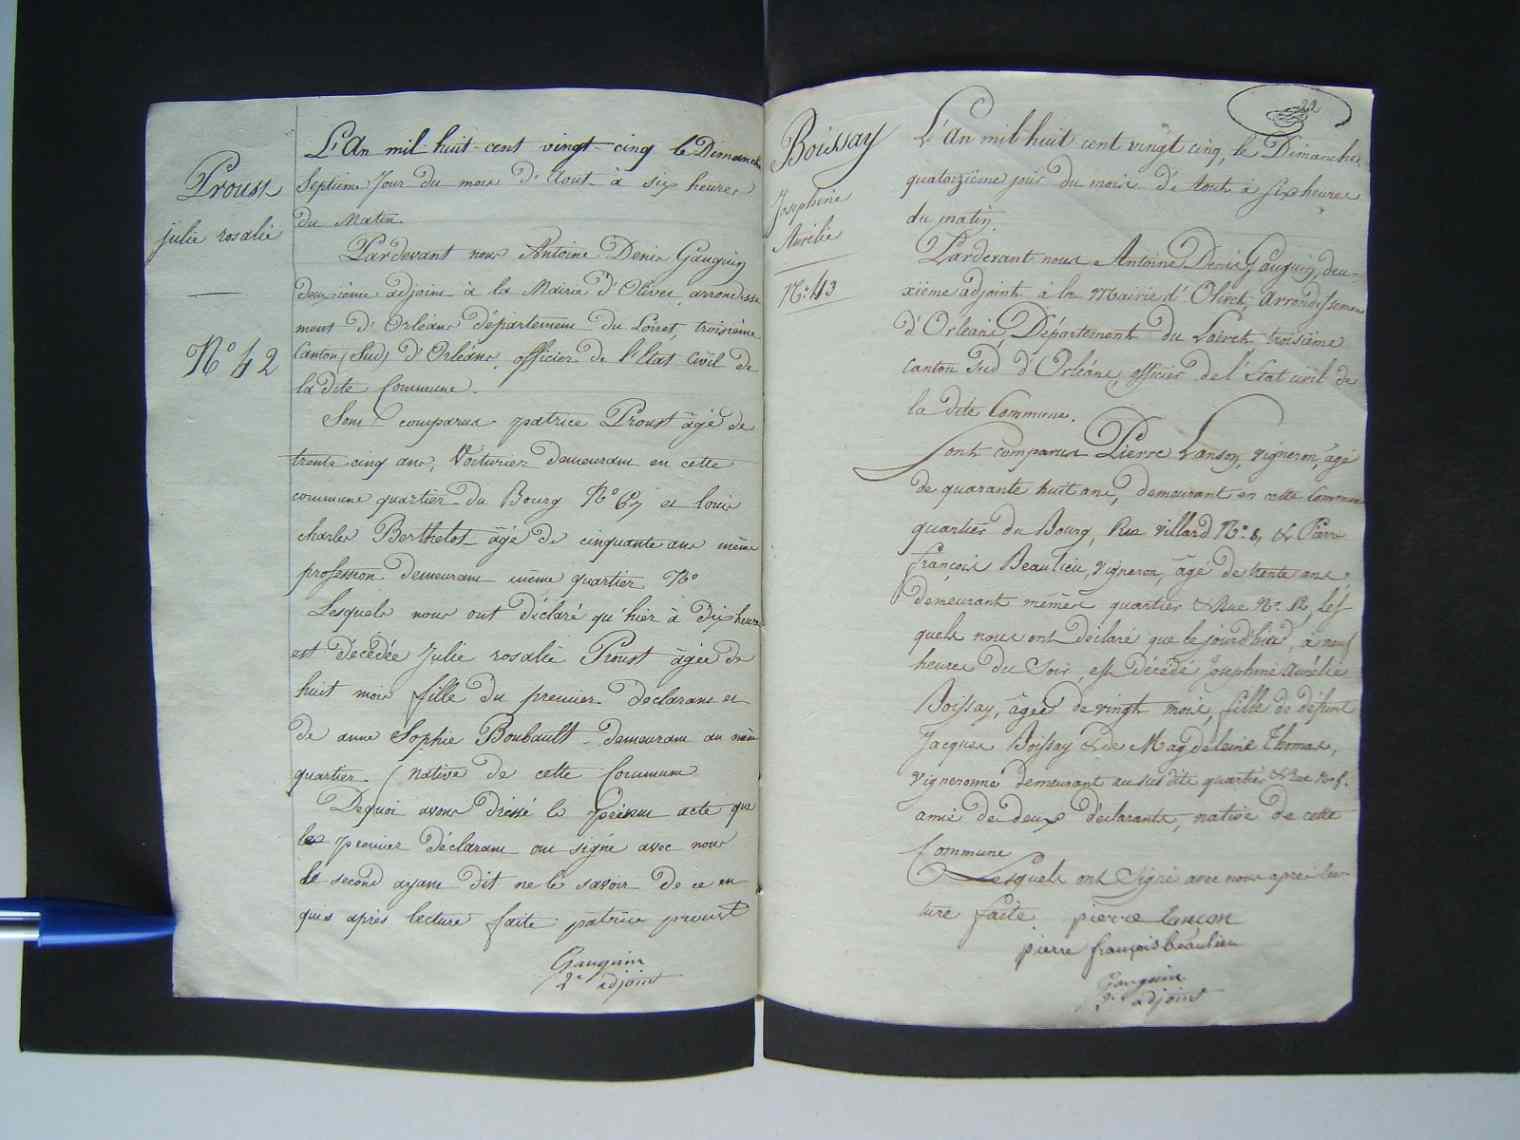 Proust
julie rosalie
N° 42
L'An mil huit cent vingt cinq le Dimanche
Septieme Jour du mois D'Aout à six heures
du Matin.
Pardevant nous Antoine Denis Gauguin
deuxième adjoint à la Mairie d'Olivet, arrondisse
ment d'Orléans département du Loiret, troisième
Canton (Sud) d'Orléans, officier de l'Etat Civil de
la dite Commune.
Sont comparus patrice Proust âgé de
trente cinq ans, Voiturier demeurant en cette
commune quartier du Bourg N° 67 et louis
charles Berthelot âgé de cinquante ans même
profession demeurant même quartier N°
Lesquels nous ont déclaré qu'hier à dix heures
est décédée Julie rosalie Proust âgée de
huit mois fille du premier declarant et
de anne Sophie Boubault demeurant au même
quartier (native de cette Commune
Dequoi avons dressé le présent acte que
le premier déclarant ont signé avec nous
le second ayant dit ne le savoir de ce en
quis après lecture faite patrice proust
Gauguin
2e adjoint
22
Boissay
Josephine
Aurélie
N°. 43
L'An mil huit cent vingt cinq, le Dimanche
quatorzième jour du mois d'Aout à six heures
du matin.
Pardevant nous Antoine Denis Gauguin, deu-
xième adjoint à la Mairie d'Olivet, arrondissement
d'Orléans, Département du Loiret troisième
canton Sud d'Orléans, officier de l'état civil de
la dite Commune.
Sont comparus Pierre Lanson, vigneron, âgé
de quarante huit ans, demeurant en cette Commune
quartier du Bourg, Rue villard N°. 8, & Pierre
françois Beaulieu, vigneron, âgé de trente ans
demeurant mêmes quartier & Rue N°. 12, les-
quels nous ont déclaré que le jourd'hier, à neuf
heures du Soir, est décédé Josephine aurélie
Boissay, âgée de vingt mois, fille de défunt
Jacques Boissay & de Magdeleine Thomas,
vigneronne demeurant au susdite quartier & Rue
amie de deux déclarants, native de cette
Commune
Lesquels ont Signé avec nous après lec-
ture faite. pierre lançon
pierre françois beaulieu
Gauguin
2e adjoint